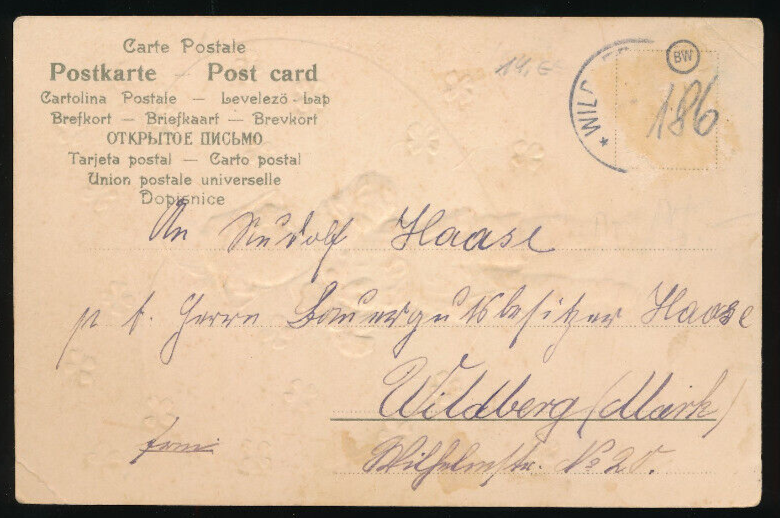 Carte Postale
Postkarte — Post card
Cartolina Postale — Levelező-Lap
Brefkort — Briefkaart — Brevkort
ОТКРЫТОЕ ПИСЬМО
Tarjeta postal — Carto postal
Union postale universelle
Dopisnice
BW
* WILD
186
An Rudolf Haase
p. t. Herrn Bauergutsbesitzer Haase
Wildberg (Mark)
frei
Wilhelmstr. No 20.